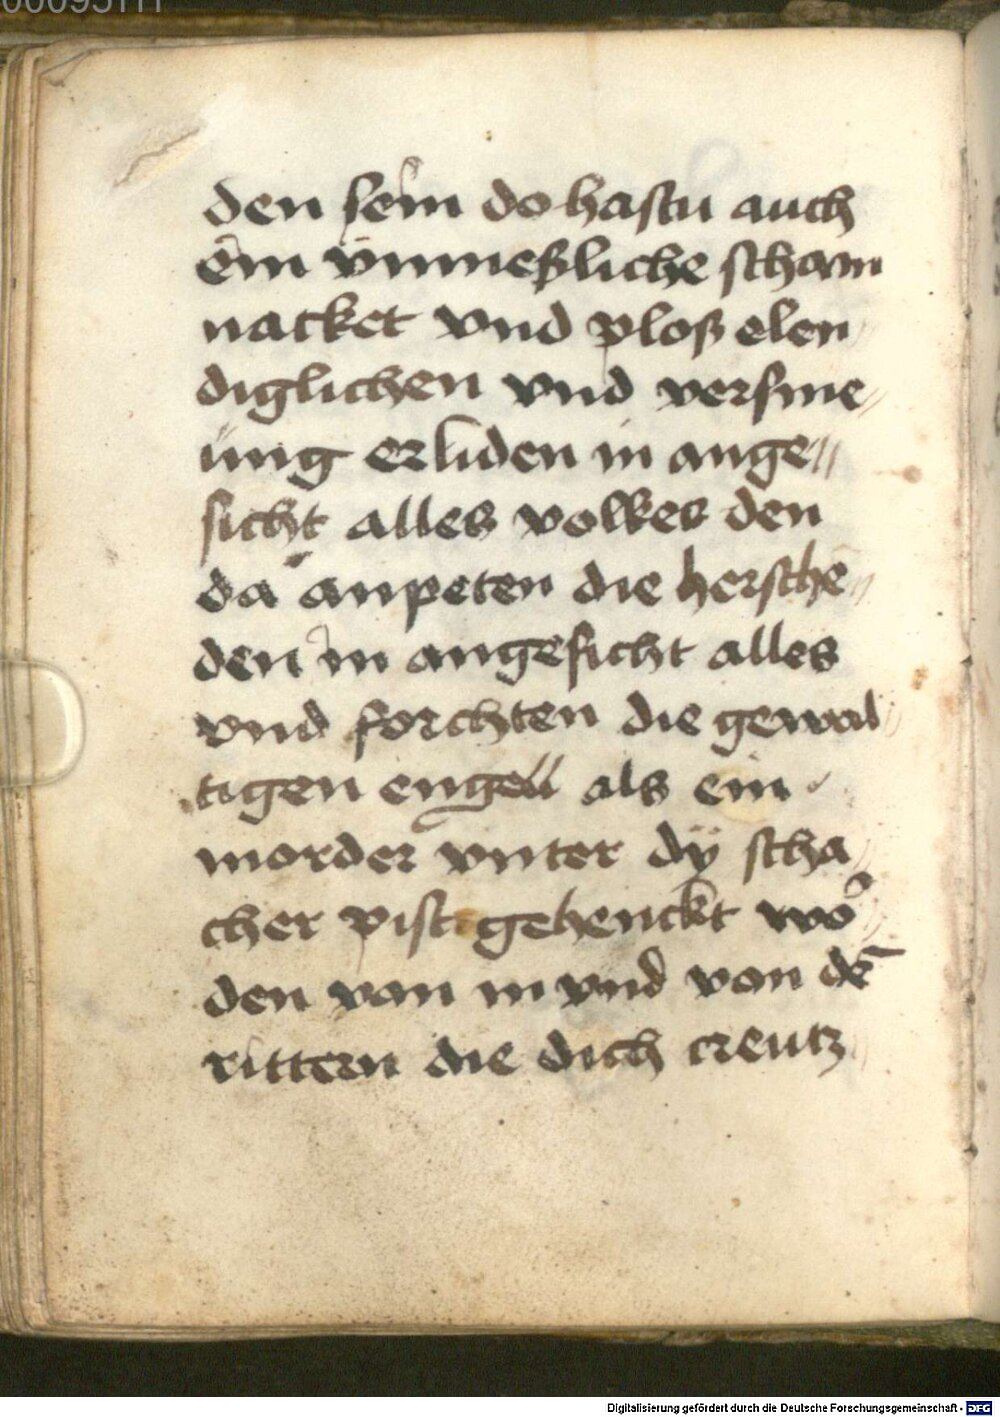 den sein do hastu auch
ein vnmeßliche scham
nacket vnd ploß elen
diglichen vnd versme„
ung erliden in ange„
sicht alles volkes den
da anpeten die hersche„
den in angesicht alles
vnd forchten die gewal„
tigen engell als ein
morder vnter dÿ scha„
cher pist gehenckt woͤ„
den von in vnd von dē
rittern die dich creutz„
Digitalisierung gefördert durch die Deutsche Forschungsgemeinschaft - DFG